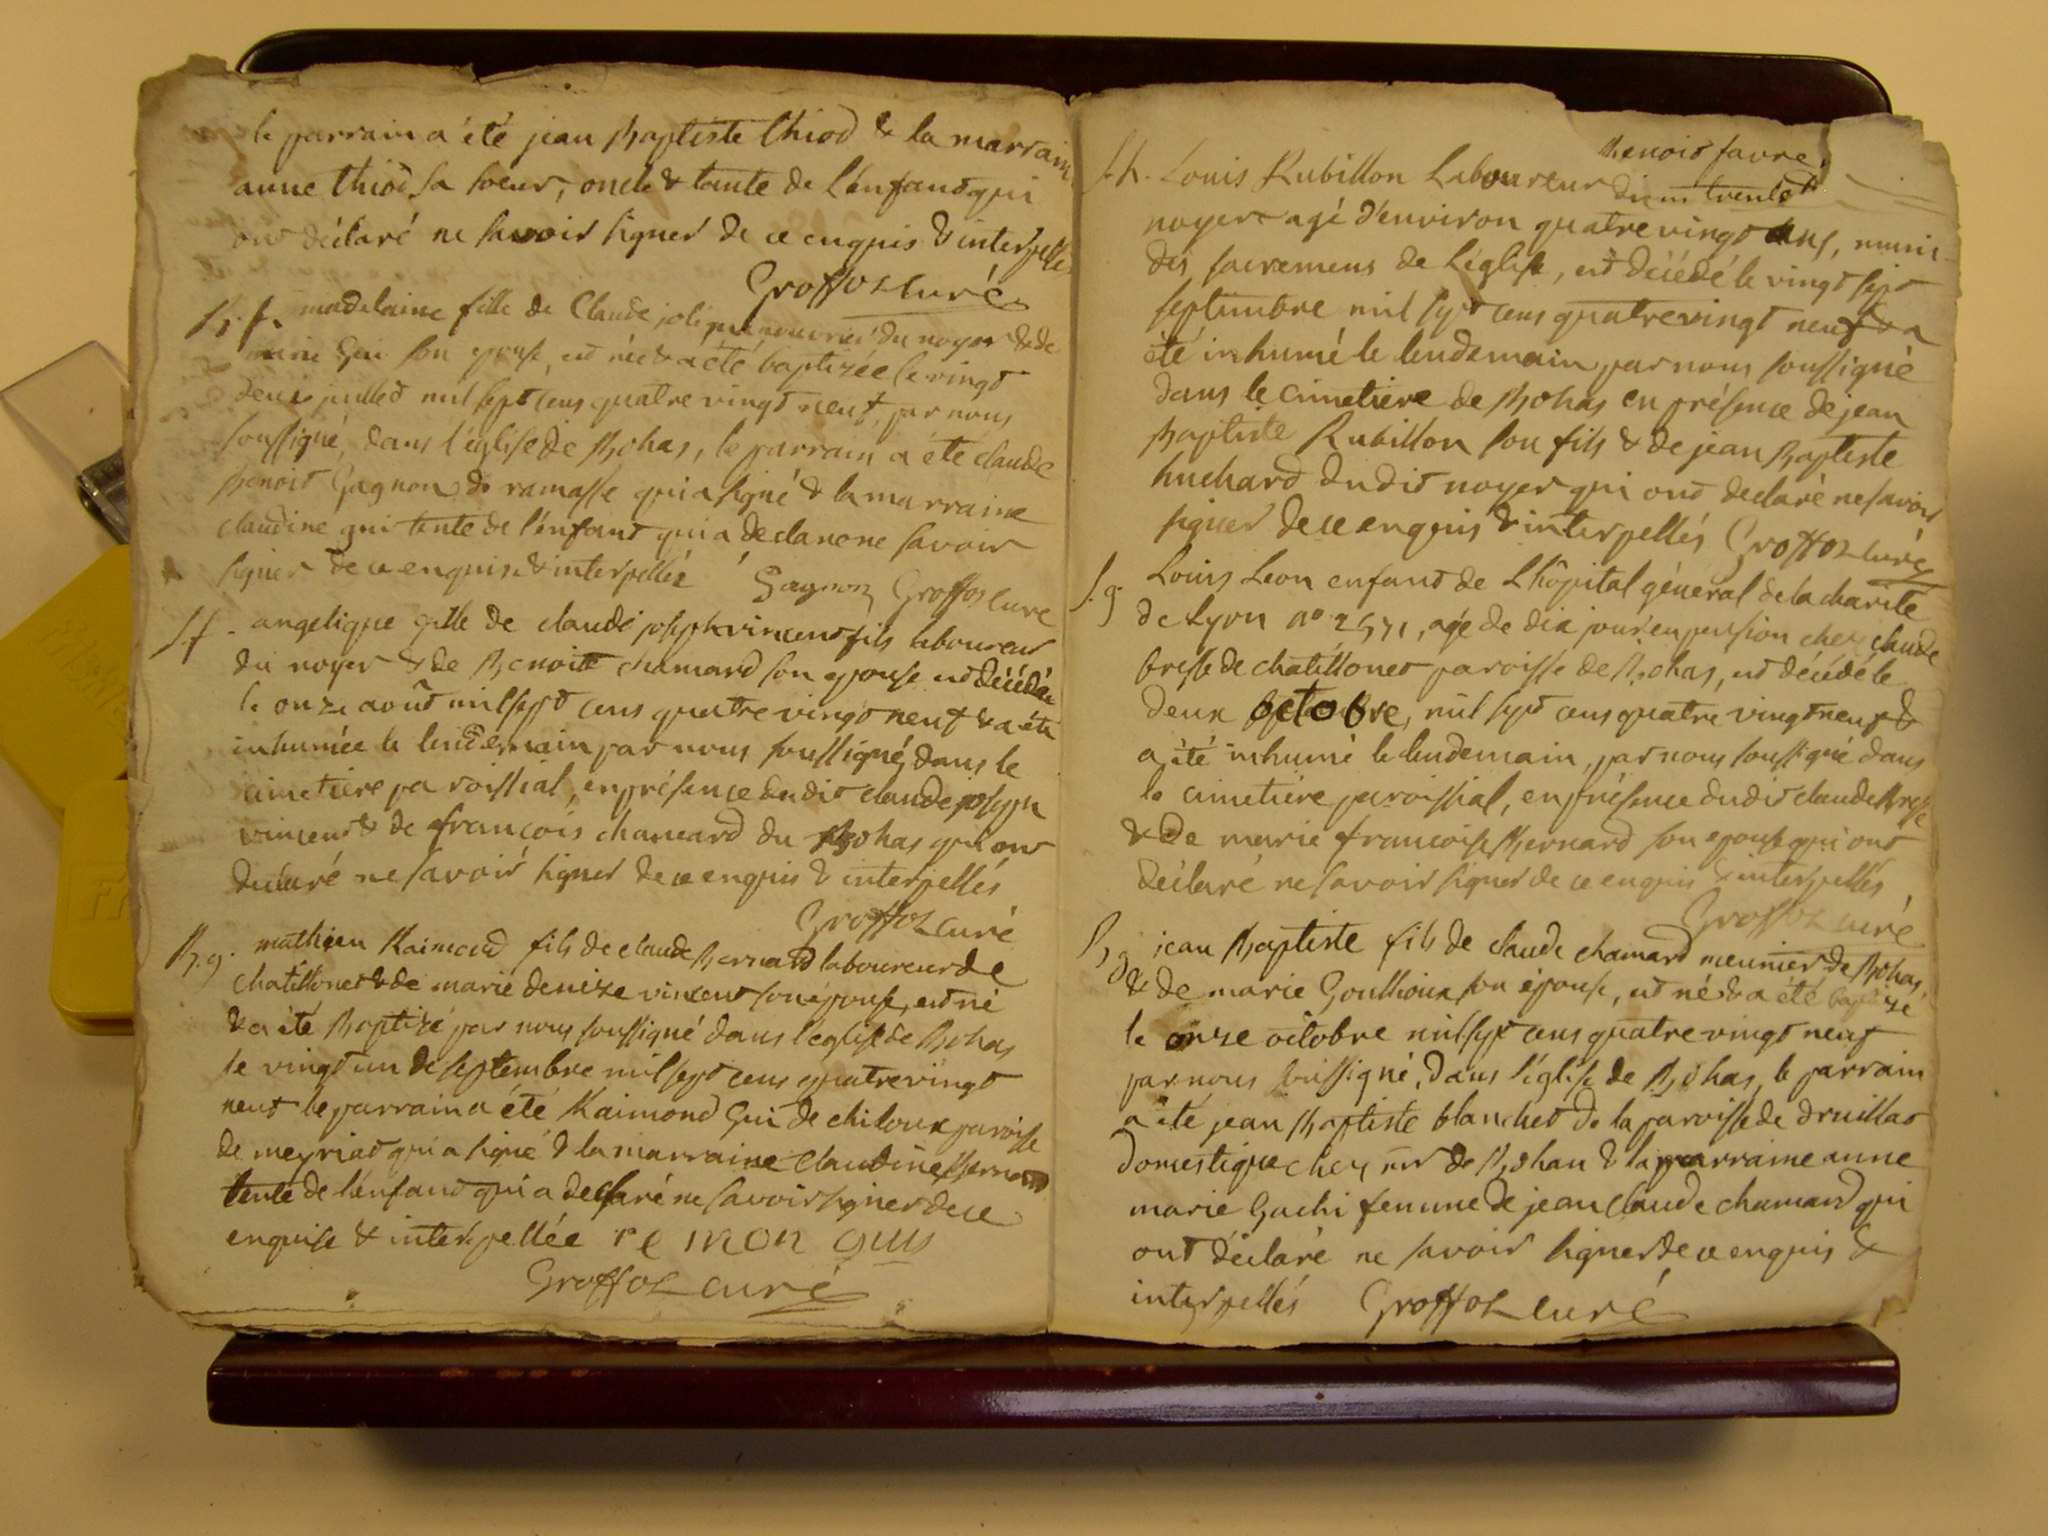 le parrain a été jean Baptiste thiod & la marraine
anne thiod sa soeur, oncle & tante de l'enfant qui
ont déclaré ne savoir signer de ce enquis & interpellés
Groffoz curé
B. f. madelaine fille de Claude joli du noyer & de
marie Gui son epouse, est née & a été baptizée le vingt
deux juillet mil sept cens quatre vingt neuf, par nous
soussigné, dans l'église de Bohas, le parrain a été claude
Benoit Gagnon de ramasse qui a signé & la marraine
claudine gui tente de l'enfant qui a declane ne savoir
signer de ce enquise & interpellée Gagnon Groffoz curé
S. f. angelique fille de claude joseph vincent fils laboureur
du noyer & de Benoitte chamard son epouse est décédée
le onze août mil sept cens quatre vingt neuf & a été
inhumée le lendemain par nous soussigné, dans le
cimetiere paroissial, en présence dudit claude joseph
vincent & de françois chamard du Bohas qui ont
déclaré ne savoir signer de ce enquis & interpellés
Groffoz curé
B. g. mathieu Raimond fils de claude Bernard laboureur de
chatillonet & de marie denize vincent son épouse, est né
& a été Baptizé par nous soussigné dans l'église de Bohas
le vingt un de septembre mil sept cens quatre vingt
neuf le parrain a été Raimond Gui de chiloux paroisse
de meyriat qui a signé & la marraine Claudine Bernard
tente de l'enfant qui a declaré ne savoir signer de ce
enquise & interpellée remon guis
Groffoz curé
Benoit favre
S. h. Louis Rubillon Laboureur du
noyer agé d'environ quatre vingt ans, muni
des sacremens de l'église, est décédé le vingt sept
septembre mil sept cens quatre vingt neuf & a
été inhumé le lendemain par nous soussigné
dans le cimetiere de Bohas en présence de jean
Baptiste Rubillon son fils & de jean Baptiste
huchard dudit noyer qui ont declaré ne savoir
signer de ce enquis & interpellés Groffoz curé
S. g. Louis Leon enfant de L'hôpital général de la charité
de Lyon n° 2571, agé de dix jours en pension chez claude
bresse de chatillonet paroisse de Bohas, est décédé le
deux octobre, mil sept cens quatre vingt neuf &
a été inhumé le lendemain, par nous soussigné dans
le cimetiére paroissial, en présence dudit claude Bresse
& de marie francoise Bernard son epouse qui ont
déclaré ne savoir signer de ce enquis & interpellés
Groffoz curé
B g jean Baptiste fils de claude chamard meunier de Bohas,
& de marie Goullioux son épouse, est né & a été baptizé
le onze octobre mil sept cens quatre vingt neuf
par nous soussigné, dans l'église de Bohas, le parrain
a été jean Baptiste blanchet de la paroisse de druillat
domestique chez mr de Bohan & la marraine anne
marie Guchi femme de jean claude chamard qui
ont déclaré ne savoir signer de ce enquis &
interpellés Groffoz curé